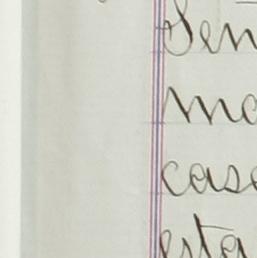 Sen
ma
case
esta